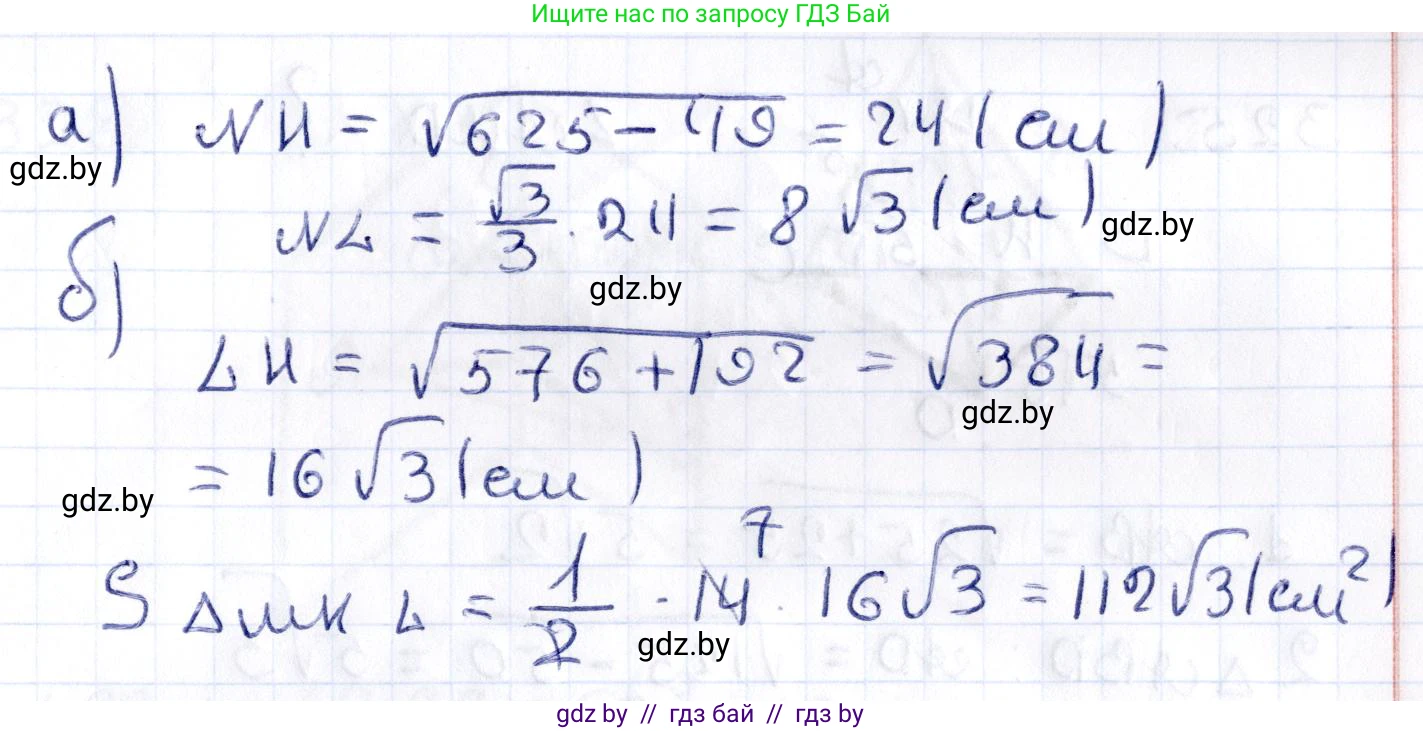 Ищите нас по запросу ГДЗ Бай
а) NH = √625 - 49 = 24 (см)
gdz.by
NL = √3/3 · 24 = 8 √3 (см)
gdz.by
gdz.by
б)
LH = √576 + 192 = √384 =
gdz.by
= 16 √3 (см)
gdz.by
S △MKL = 1/2 · 14 7 · 16 √3 = 112 √3 (см²)
gdz.by
gdz by // гдз бай // гдз by